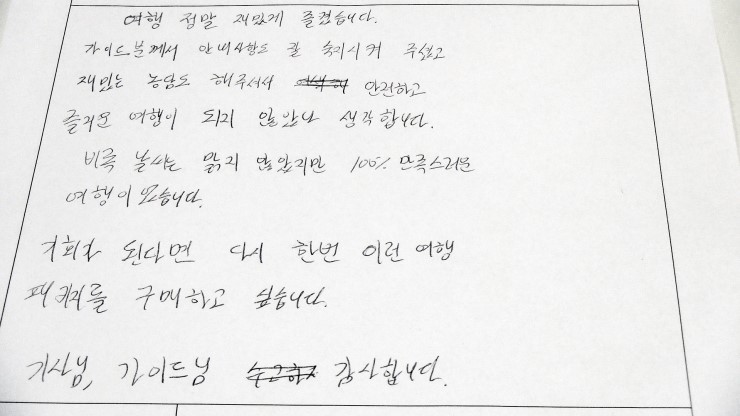 여행 정말 재밌게 즐겼습니다.
가이드분께서 안내사항도 잘 숙지시켜 주셨고
재밌는 농담도 해주셔서 안전하고
즐거운 여행이 되지 않았나 생각합니다.
비록 날씨는 맑지 않았지만 100% 만족스러운
여행이었습니다.
기회가 된다면 다시 한번 이런 여행
패키지를 구매하고 싶습니다.
기사님, 가이드님 감사합니다.